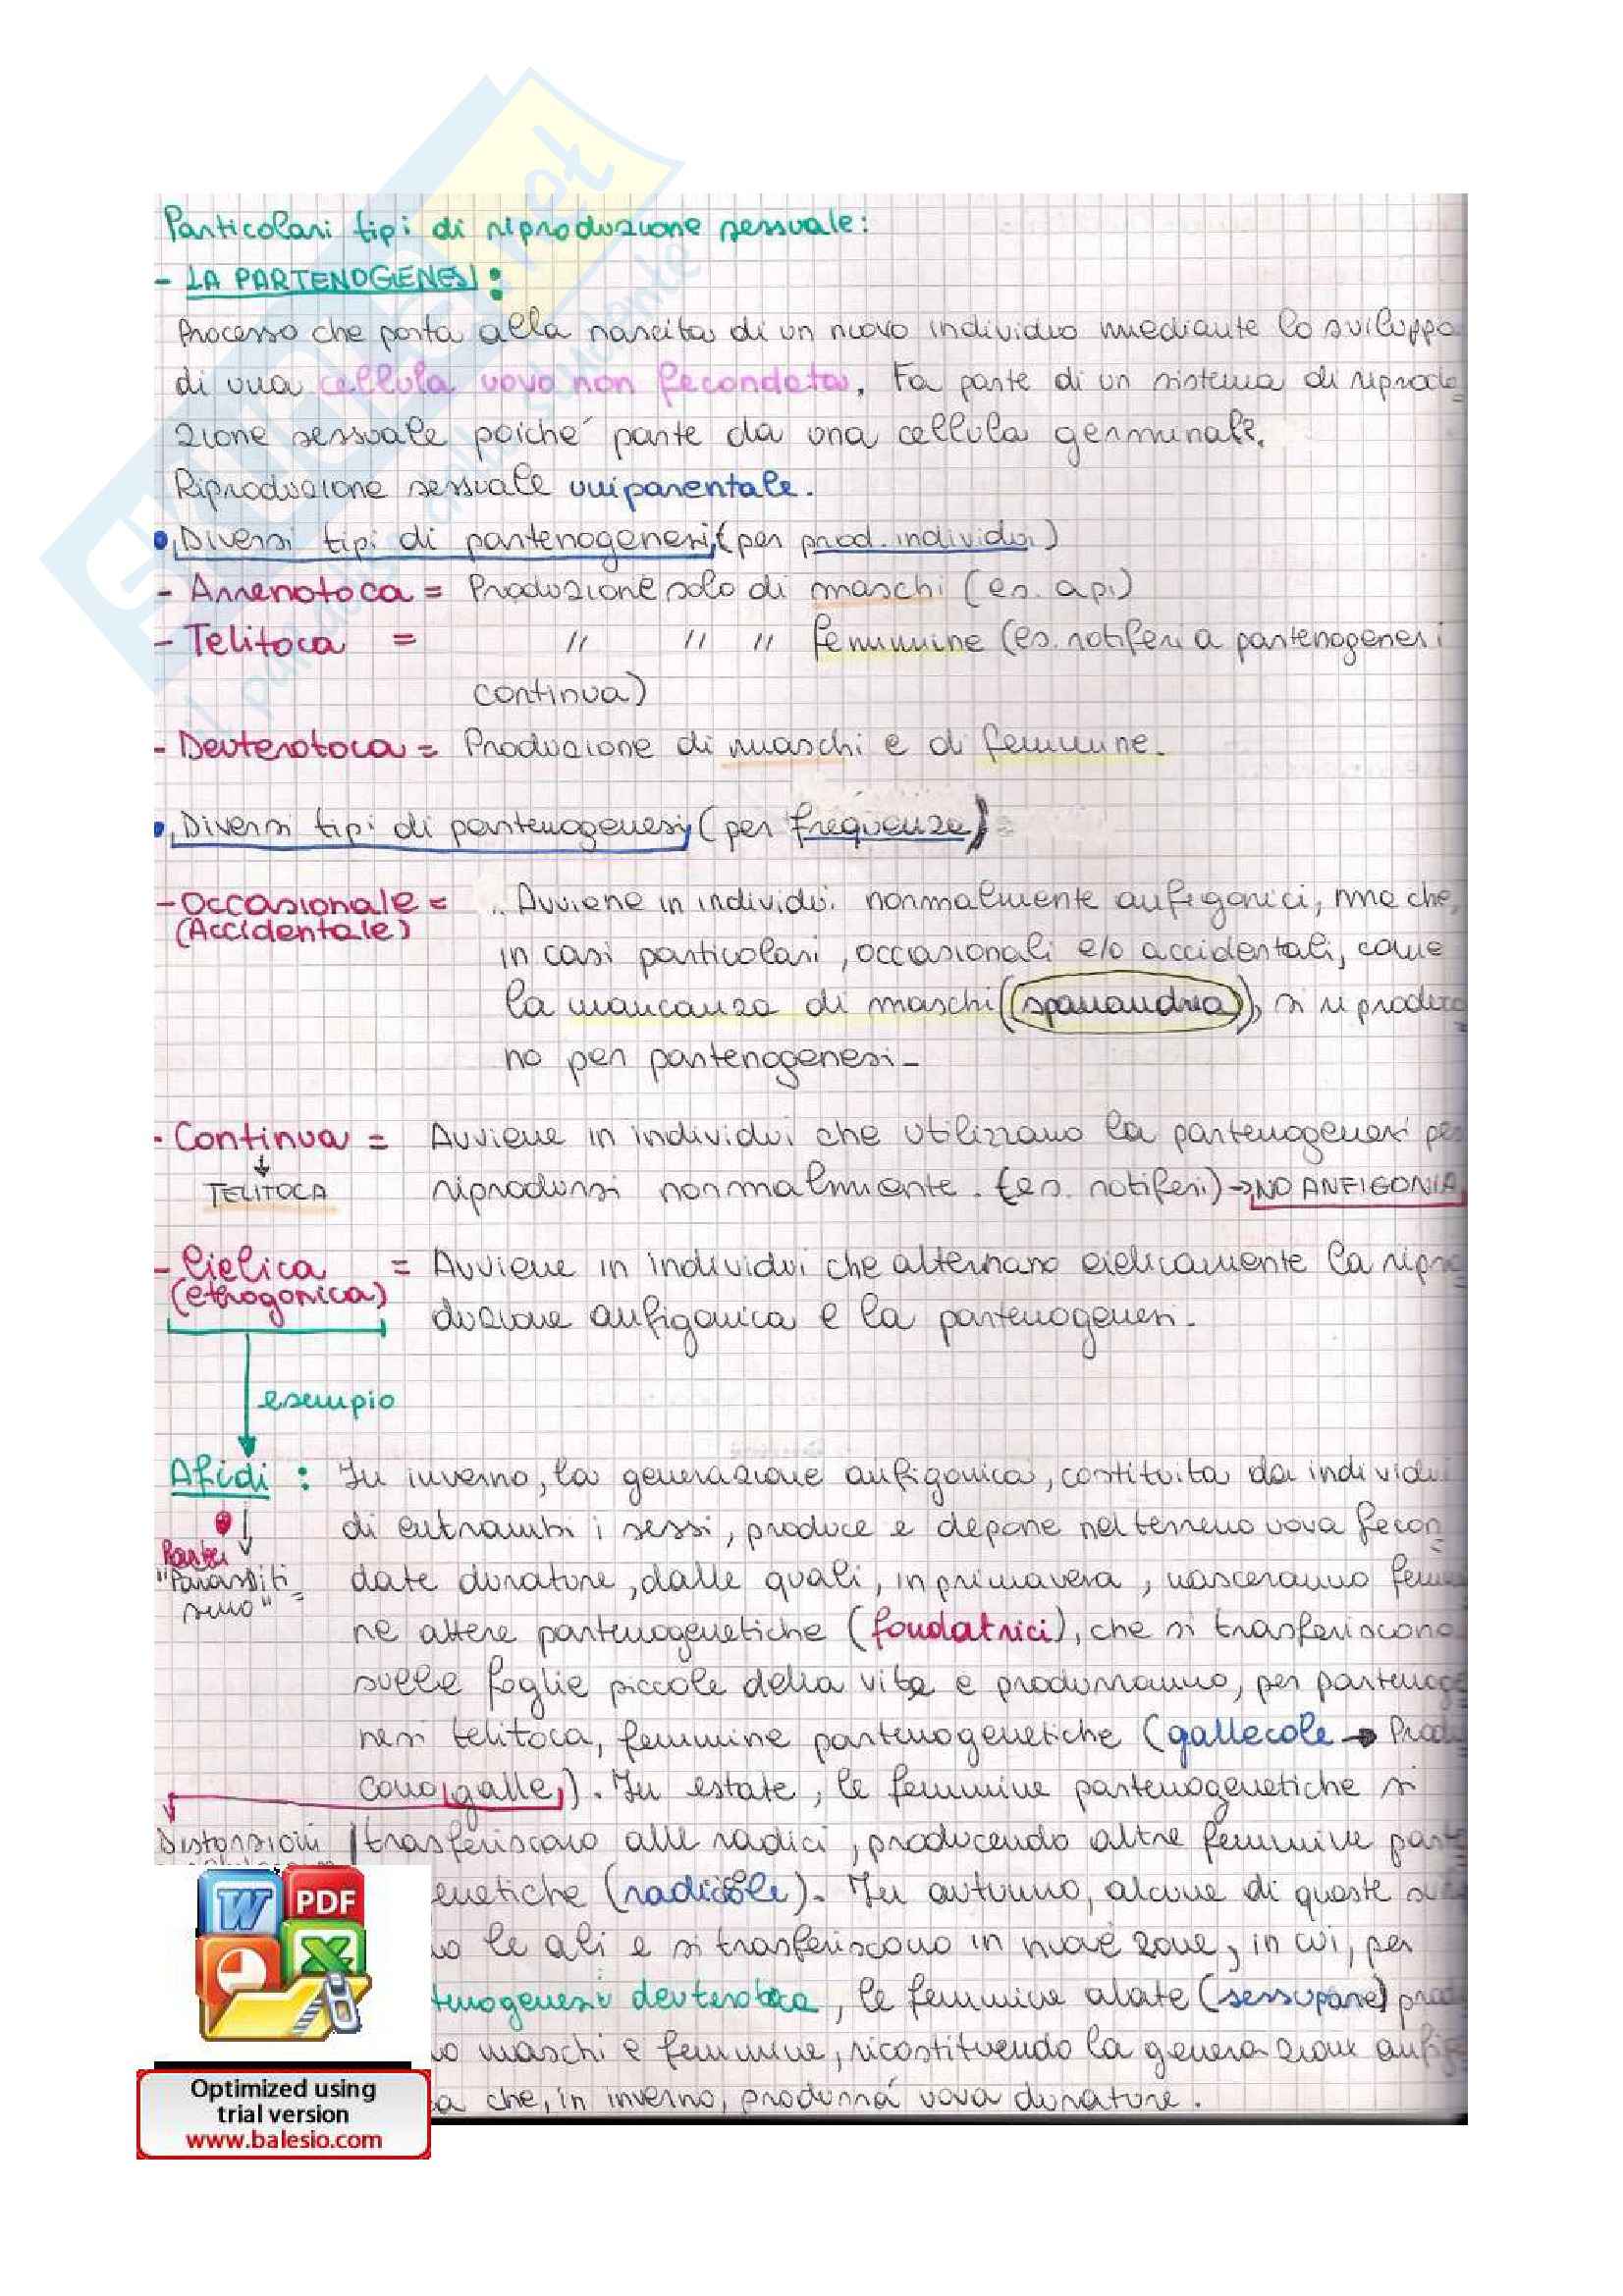 Particolari tipi di riproduzione sessuale:
- LA PARTENOGENESI:
Processo che porta alla nascita di un nuovo individuo mediante lo sviluppo
di una cellula uovo non fecondata. Fa parte di un sistema di riprodu
zione sessuale poiché parte da una cellula germinale.
Riproduzione sessuale uniparentale.
• Diversi tipi di partenogenesi (per prod. individui)
- Arrenotoca = Produzione solo di maschi (es. api)
- Telitoca = " " " femmine (es. rotiferi a partenogenesi
continua)
- Deuterotoca = Produzione di maschi e di femmine.
• Diversi tipi di partenogenesi (per frequenza)
- Occasionale = Avviene in individui normalmente anfigonici, ma che,
(Accidentale)
in casi particolari, occasionali e/o accidentali, come
la mancanza di maschi (spanandria), si riproduco
no per partenogenesi.
- Continua = Avviene in individui che utilizzano la partenogenesi per
↓
TELITOCA
riprodursi normalmente. (es. rotiferi) → NO ANFIGONIA
- Ciclica = Avviene in individui che alternano ciclicamente la ripro
(eterogonica)
duzione anfigonica e la partenogenesi.
esempio
Afidi : In inverno, la generazione anfigonica, costituita da individui
di entrambi i sessi, produce e depone nel terreno uova fecon
"Parassiti
smo"
date durature, dalle quali, in primavera, nasceranno femmi
ne attere partenogenetiche (fondatrici), che si trasferiscono
sulle foglie piccole della vite e produrranno, per partenoge
nesi telitoca, femmine partenogenetiche (gallecole → Produ
cono galle). In estate, le femmine partenogenetiche si
Distorsioni
trasferiscono alle radici, producendo altre femmine parte
enetiche (radicole). In autunno, alcune di queste
no le ali e si trasferiscono in nuove zone, in cui, per
tenogenesi deuterotoca, le femmine alate (sessupare) prod
no maschi e femmine, ricostituendo la generazione anfig
ca che, in inverno, produrrà uova durature.
W
PDF
X
Optimized using
trial version
www.balesio.com